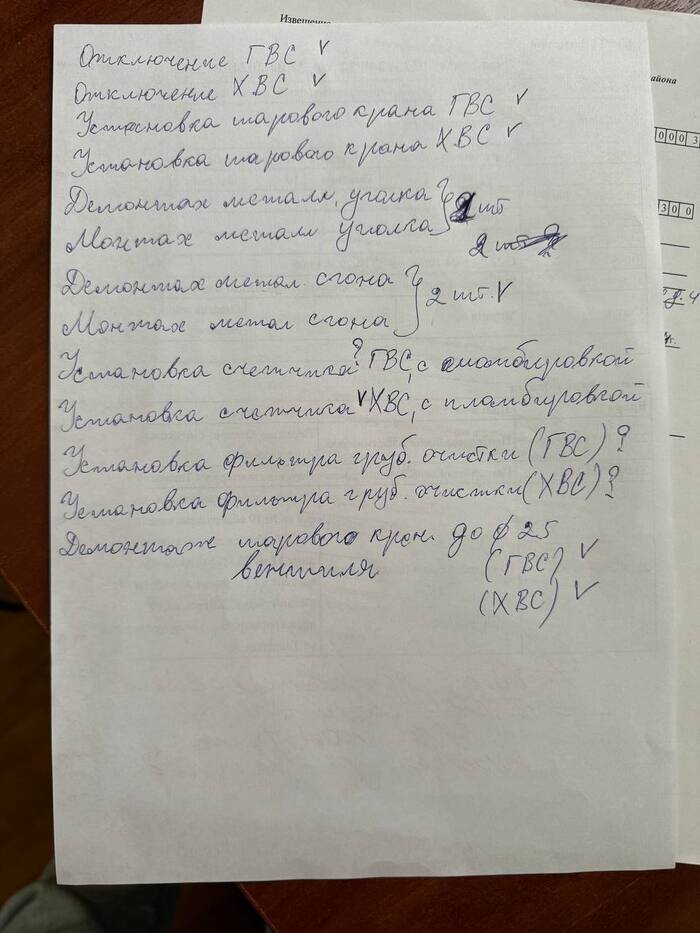 Извещение
района
0003
300
Отключение ГВС ✓
Отключение ХВС ✓
Установка шарового крана ГВС ✓
Установка шарового крана ХВС ✓
Демонтаж металл. уголка
Монтаж металл уголка
2 шт
2 шт
Демонтаж метал. сгона
Монтаж метал сгона
2 шт. ✓
Установка счетчика ? ГВС, с пломбировкой
Установка счетчика ✓ ХВС, с пломбировкой
Установка фильтра груб. очистки (ГВС) ?
Установка фильтра груб. очистки (ХВС) ?
Демонтаж шарового кран. до ϕ 25
вентиля (ГВС) ✓
(ХВС) ✓